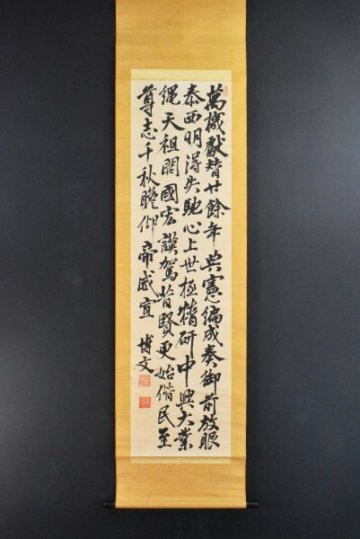 萬機獻替廿餘年典憲編成奏御前放眼
泰西明得失馳心上世極精研中興大業
繩天祖開國宏謨駕昔賢更始偕民至
尊志千秋瞻仰帝威宣
博文